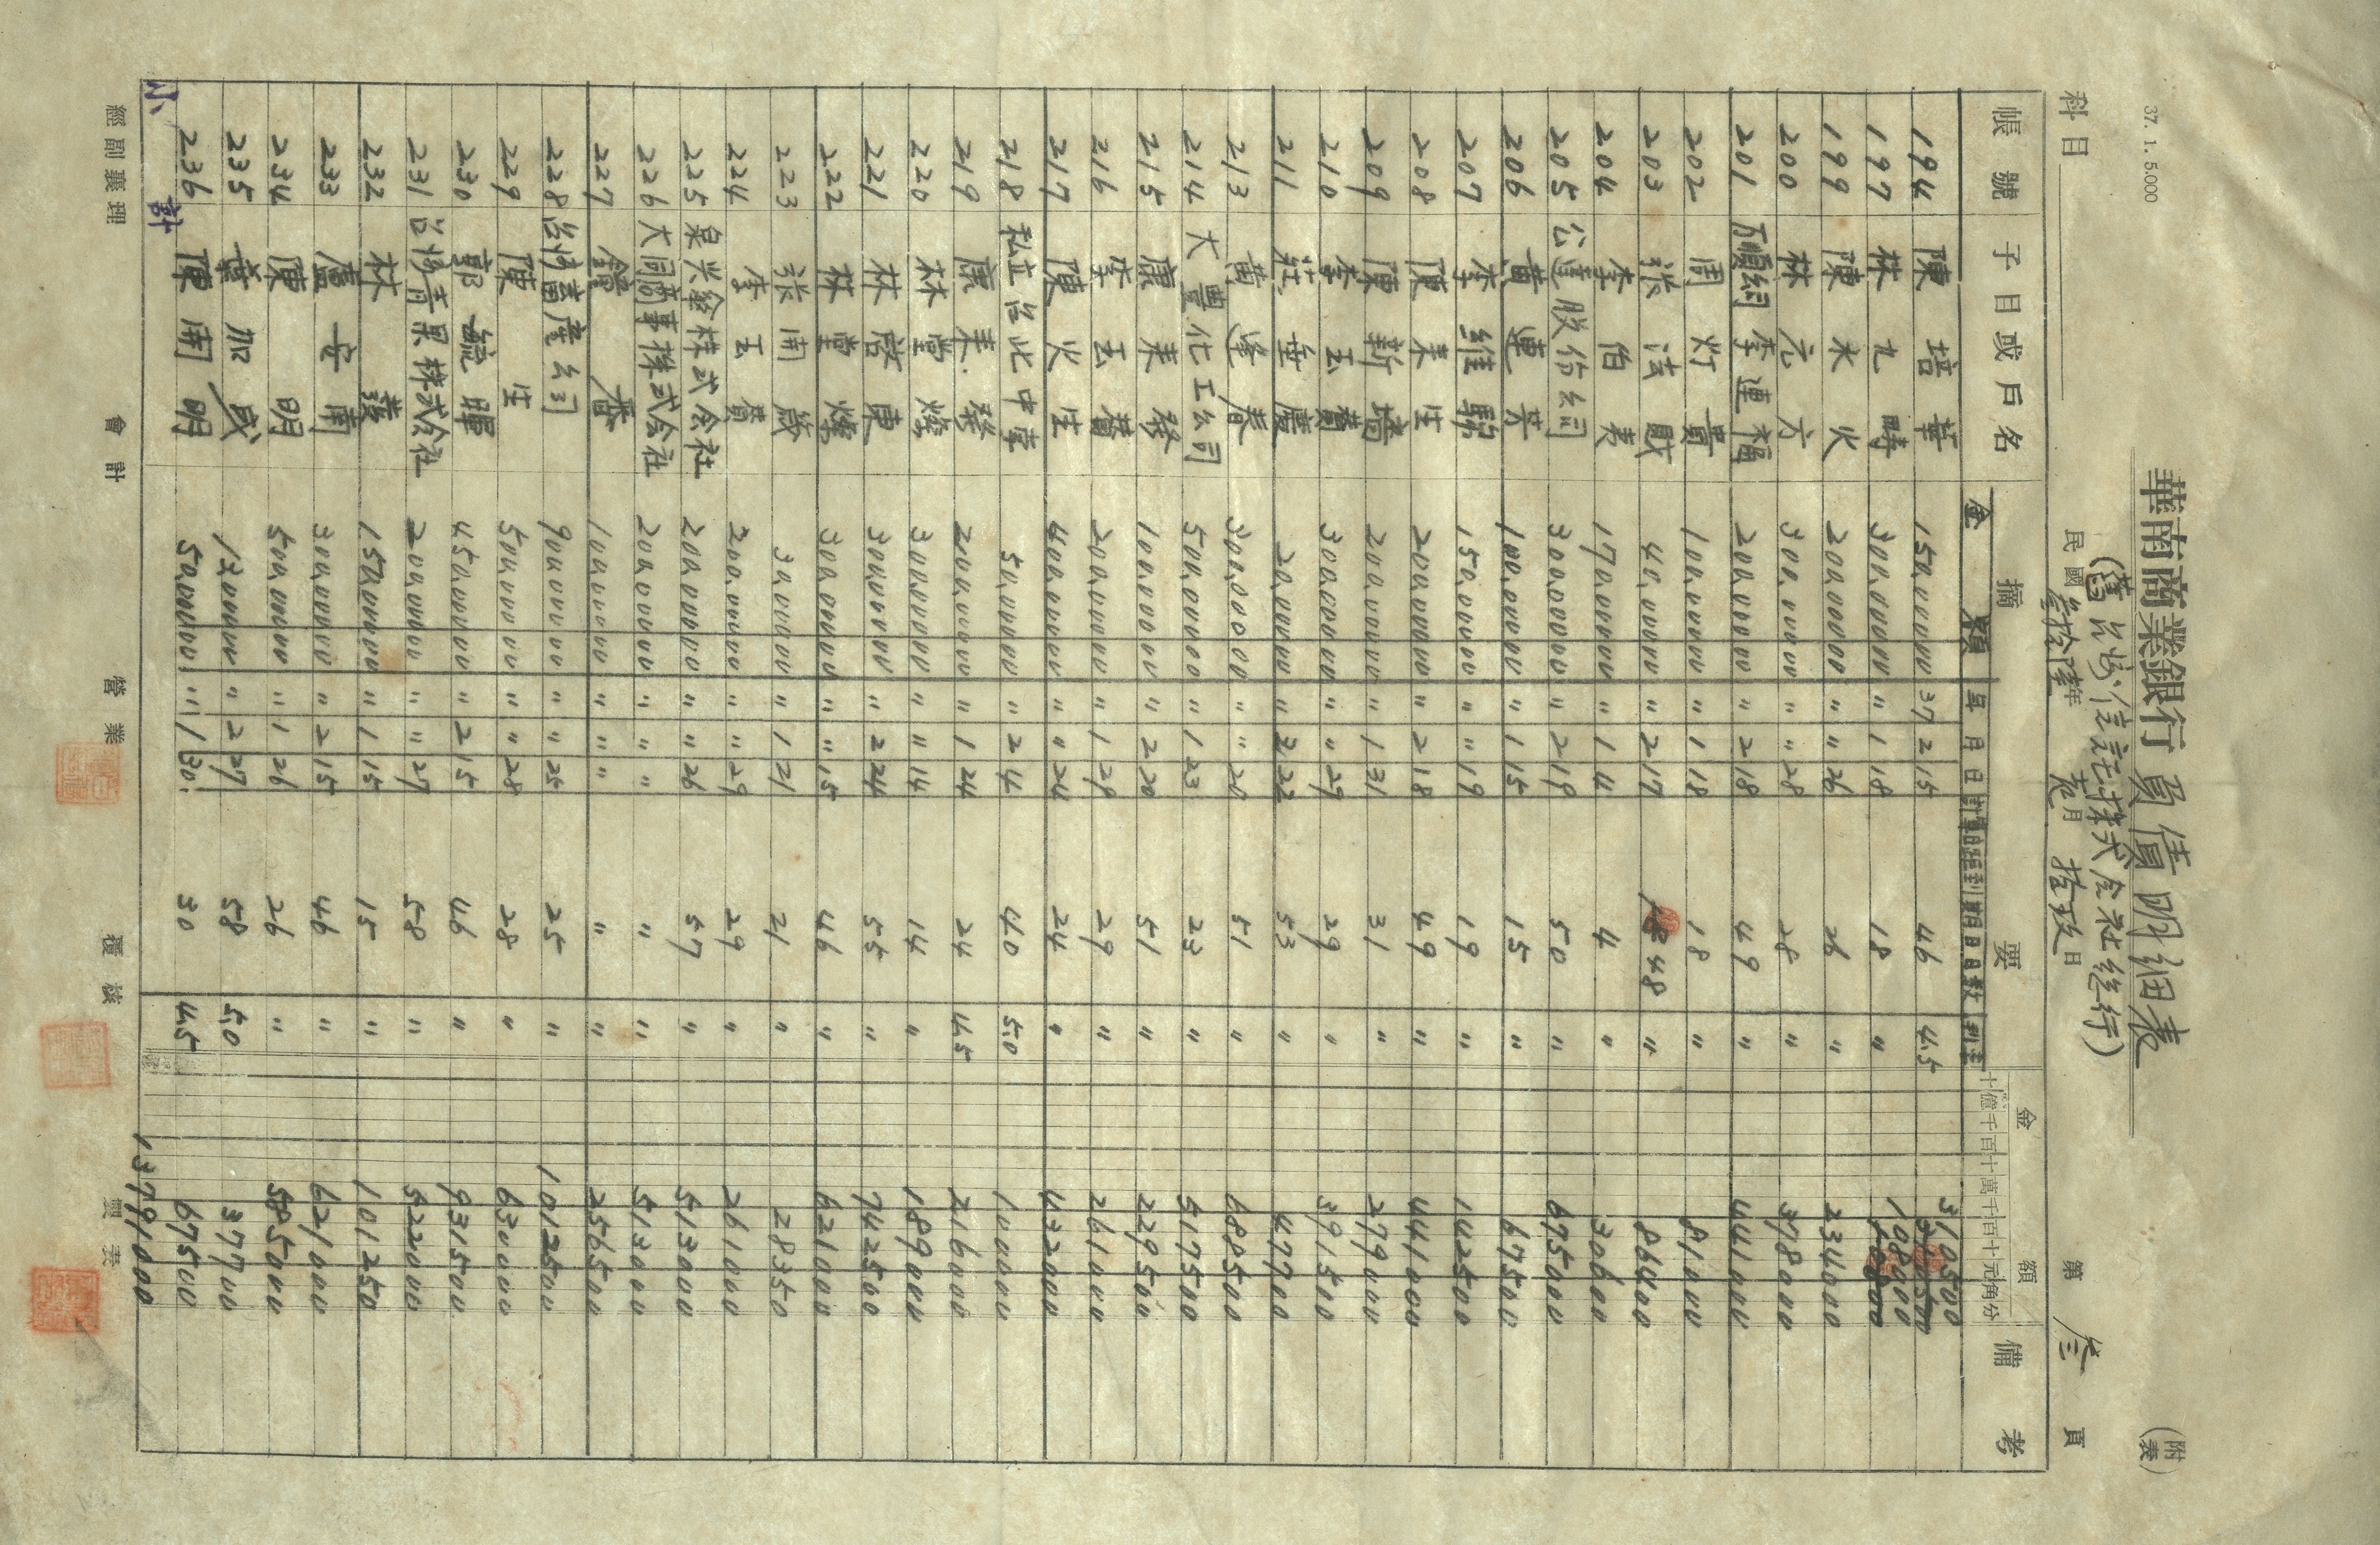 37. 1. 5.000
華南商業銀行 負債明細表
(附表)
(舊台灣信託株式会社總行)
科目
民國 叁拾陸年 月 拾玖日
第 叁 頁
帳號 子目或戶名 摘要 金額 備考
金額 年 月 日 計算日距到期日日數 利率 十億千百十萬千百十元角份
194 陳培華 150,000 00 37 2 15 46 4.5 31,050 0
197 林九疇 300,000 00 〃 1 18 18 〃 1080 00
199 陳水火 200,000 00 〃 〃 26 26 〃 2340 00
200 林元方 300,000 00 〃 〃 28 28 〃 3780 00
201 李連福 200,000 00 〃 2 18 49 〃 4410 00
202 周灯貴 100,000 00 〃 1 18 18 〃 810 00
203 張法財 40,000 00 〃 2 17 48 〃 864 00
204 李伯表 170,000 00 〃 1 4 4 〃 306 00
205 公達股份公司 300,000 00 〃 2 19 50 〃 6750 00
206 黃連芳 100,000 00 〃 1 15 15 〃 675 00
207 李維 150,000 00 〃 〃 19 19 〃 1425 00
208 陳来生 200,000 00 〃 2 18 49 〃 4410 00
209 陳新墻 200,000 00 〃 1 31 31 〃 2790 00
210 李玉贊 300,000 00 〃 〃 29 29 〃 3915 00
211 莊垂慶 20,000 00 〃 2 22 53 〃 477 00
213 黃逢春 300,000 00 〃 〃 20 51 〃 6885 00
214 大豐化工公司 500,000 00 〃 1 23 23 〃 5175 00
215 康来發 100,000 00 〃 2 20 51 〃 2295 00
216 李玉贊 200,000 00 〃 1 29 29 〃 2610 00
217 陳火生 400,000 00 〃 〃 24 24 〃 4320 00
218 私立台北中学 50,000 00 〃 2 4 40 5.0 1000 00
219 康来發 200,000 00 〃 1 24 24 4.5 2160 00
220 林堂燦 300,000 00 〃 〃 14 14 〃 1890 00
221 林啓東 300,000 00 〃 2 24 55 〃 7425 00
222 林堂燦 300,000 00 〃 〃 15 46 〃 6210 00
223 张開 30,000 00 〃 1 21 21 〃 283 50
224 李玉贊 200,000 00 〃 〃 29 29 〃 2610 00
225 泉兴 株式会社 200,000 00 〃 〃 26 57 〃 5130 00
226 大同商事株式会社 200,000 00 〃 〃 〃 〃 〃 5130 00
227 鐘 番 100,000 00 〃 〃 〃 〃 〃 2565 00
228 台灣畜産公司 900,000 00 〃 〃 25 25 〃 10125 00
229 陳生 500,000 00 〃 〃 28 28 〃 6300 00
230 郭毓暉 450,000 00 〃 2 15 46 〃 9315 00
231 台灣青果株式会社 200,000 00 〃 〃 27 58 〃 5220 00
232 林 發 150,000 00 〃 1 15 15 〃 1012 50
233 盧安南 300,000 00 〃 2 15 46 〃 6210 00
234 陳明 500,000 00 〃 1 26 26 〃 5850 00
235 葉加成 13,000 00 〃 2 27 58 5.0 377 00
236 陳開明 50,000 00 〃 1 30 30 4.5 675 00
小計 137910 00
經副襄理 會計 營業 覆核 製表